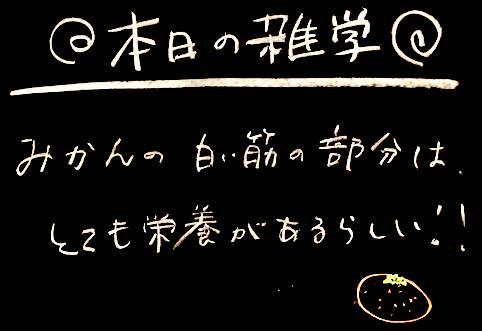 本日の雑学
みかんの白い筋の部分は、
とても栄養があるらしい!!